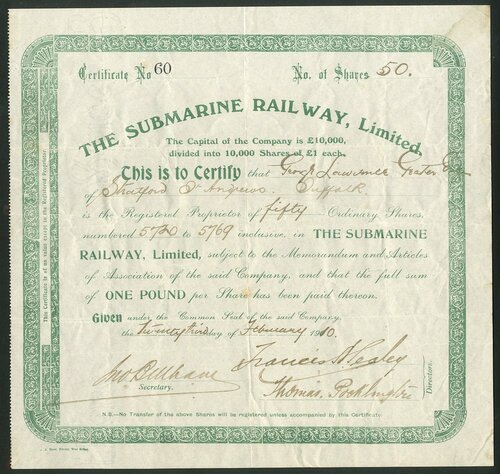 Certificate No 60 No. of Shares 50.
THE SUBMARINE RAILWAY, Limited.
The Capital of the Company is £10,000,
divided into 10,000 Shares of £1 each.
This is to Certify that Lawrence
of Stratford St Andrews. Suffolk
is the Registered Proprietor of fifty Ordinary Shares,
numbered 5720 to 5769 inclusive, in THE SUBMARINE
RAILWAY, Limited, subject to the Memorandum and Articles
of Association of the said Company, and that the full sum
of ONE POUND per Share has been paid thereon.
Given under the Common Seal of the said Company,
the twenty third day of February 1910.
Secretary.
Francis Healey
Thomas Pocklington
Directors.
N.B.—No Transfer of the above Shares will be registered unless accompanied by this Certificate.
This Certificate is of no value except to the Registered Proprietor